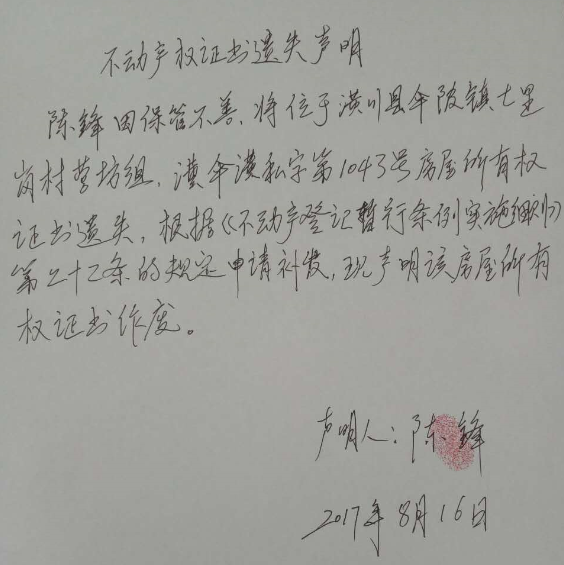 不动产权证书遗失声明
陈锋因保管不善,将位于潢川县伞陂镇七里
岗村营坊组,潢伞潢私字第1043号房屋所有权
证书遗失,根据《不动产登记暂行条例实施细则》
第二十二条的规定申请补发,现声明该房屋所有
权证书作废。
声明人:陈锋
2017年8月16日